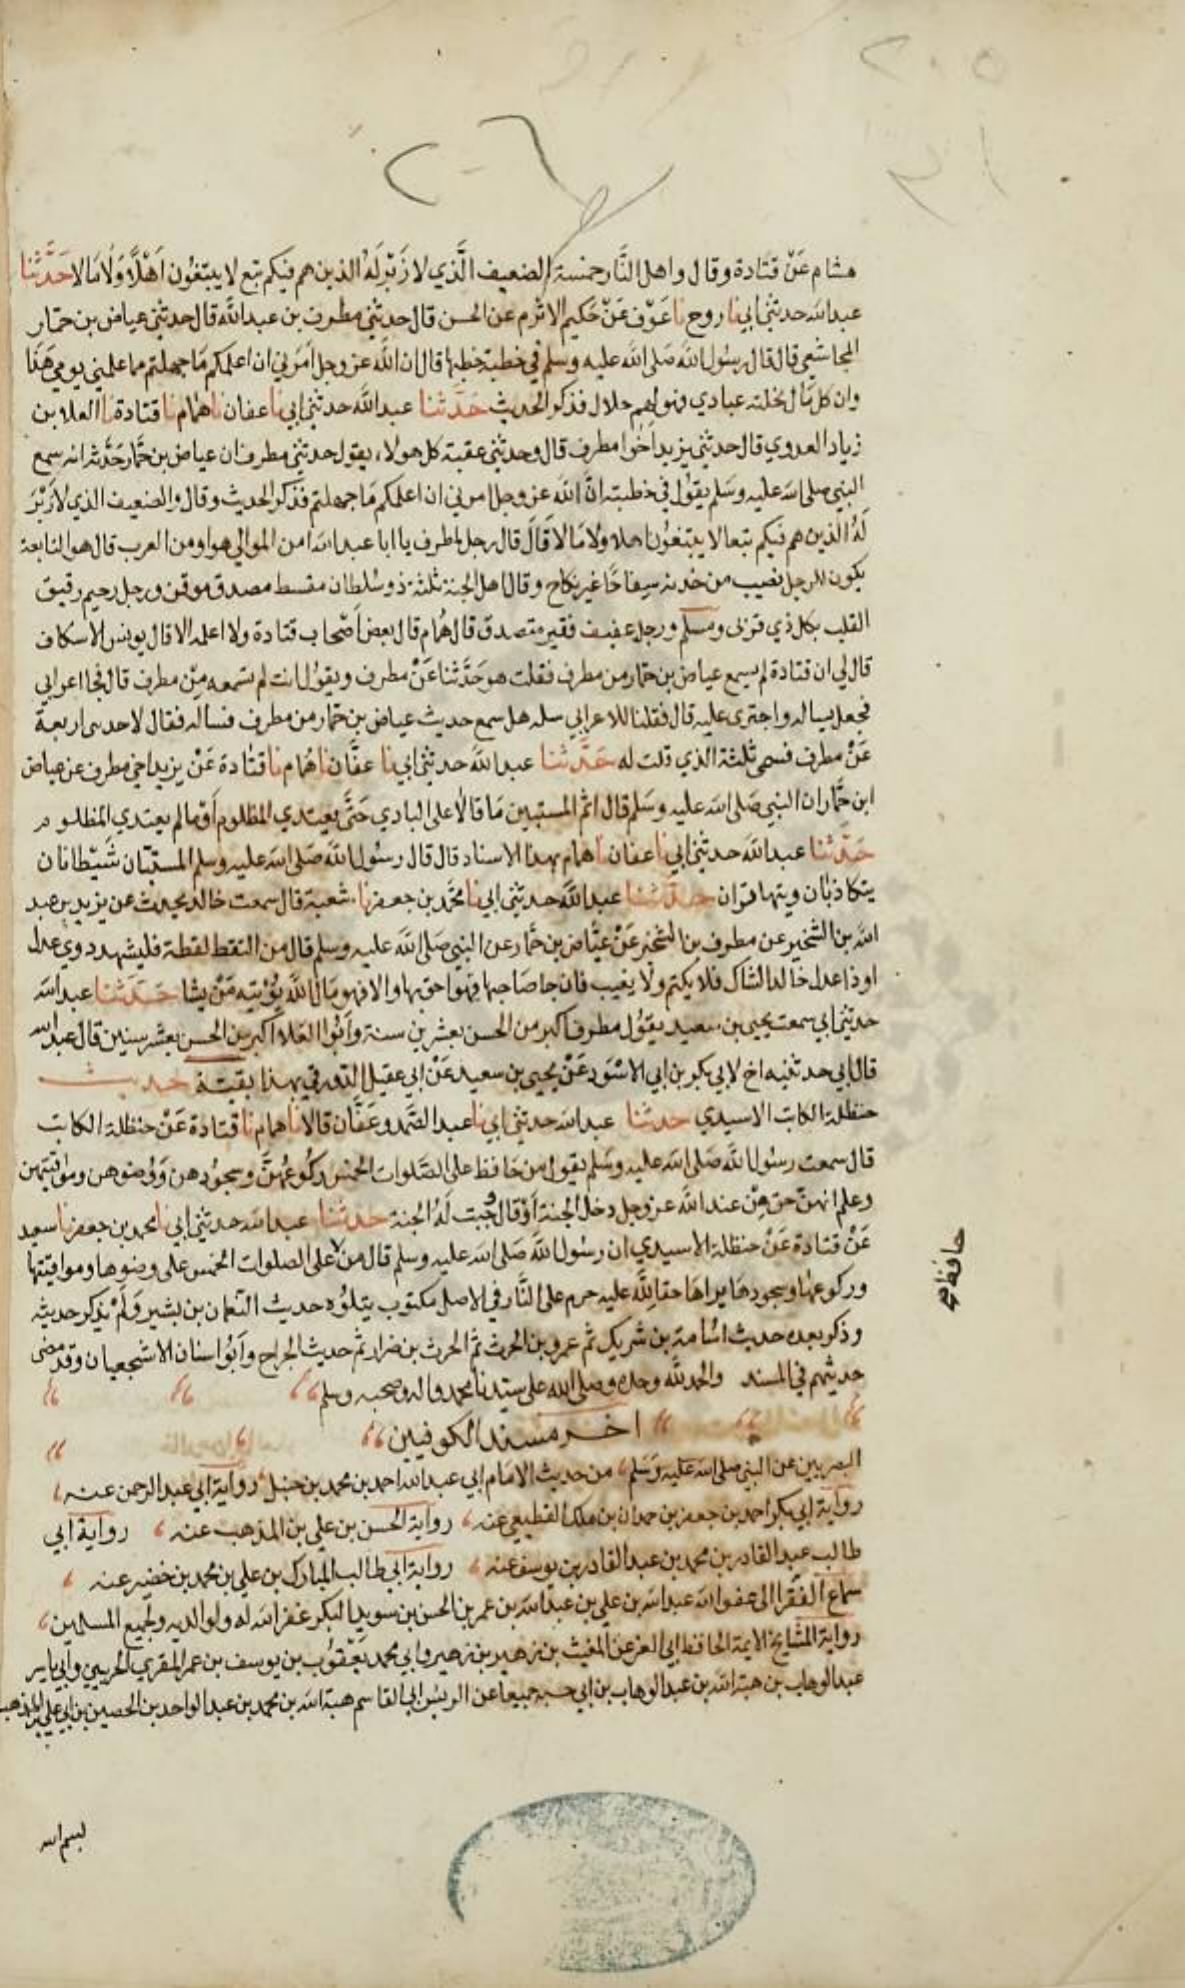 ٢٠٥
٢٠٦
هشام عَنْ قتادة وقال واهل النَّار خمسة الضعيف الَّذي لا زَبْر لَهُ الذين هم فيكم تبع لا يبتغون اَهْلًا وَلا مَالا حَدَّثنا
عبدالله حدثني ابي نا روح نا عَوْف عَنْ حَكيم الاثرم عن الحسن قال حدثني مطرف بن عبدالله قال حدثني عياض بن حمار
المجاشعي قال قال رسُول الله صَلى الله عليه وسلم في خطبة خطبها قال ان الله عز وجل اَمَرني ان اعلمكم مَا جهلتم مما علمني يومي هَذا
وان كل مَال نحلته عبادي فهو لهم حلال فذكر الحديث حَدَّثنا عبدالله حدثني ابي نا عفان نا همام نا قتادة نا العلا بن
زياد العدوي قال حدثني يزيد اخوا مطرف قال وحدثني عقبة كل هولاء يقول حدثني مطرف ان عياض بن حمَّار حَدَّثه انه سمع
النبي صلى الله عليه وسَلم يقول في خطبته انَّ الله عز وجل امرني ان اعلمكم مَا جهلتم فذكر الحديث وقال والضعيف الذي لا زَبْرَ
لَهُ الذين هم فيكم تبعا لا يبتغُون اهلا ولا مَالا قَالَ قال رجل لمطرف يا ابا عبدالله امن الموالي هو او من العرب قال هو التابعة
يكون للرجل يصيب من خدمه سِفاحًا غير نكاح وقال اهل الجنة ثلثة ذو سُلطان مقسط مصدق موقن ورجل رحيم رقيق
القلب بكل ذي قربى ومسلم ورجل عفيف فقير متصدق قال همام قال بعض اَصْحاب قتادة ولا اعلمه الا قال يونس الاسكاف
قال لي ان قتادة لم يسمع عياض بن حمار من مطرف فقلت هو حَدَّثنا عَنْ مطرف ويقول انت لم تسمعه مِنْ مطرف قال فجا اعرابي
فجعل يساله واجترى عليه قال فقلنا للاعرابي سله هل سمع حديث عياض بن حمار من مطرف فساله فقال لا حدثني اربعة
عَنْ مطرف فسمى ثلثة الذي قلت له حَدَّثنا عبدالله حدثني ابي نا عفَّان نا همام نا قتادة عَنْ يزيد اخي مطرف عن عياض
ابن حمَّار ان النبي صَلى الله عليه وسَلم قال اثم المستبين مَا قالا على البادي حَتَّى يعتدي المظلوم اَو مالم يعتدي المظلوم
حَدَّثنا عبدالله حدثني ابي نا عفان نا همام بهذا الاسناد قال قال رسُول الله صَلى الله عليه وسلم المستبَّان شَيْطانان
يتكاذبان ويتهاتران حَدَّثنا عبدالله حدثني ابي نا محمَّد بن جعفر نا شعبة قال سمعت خالد يحدث عن يزيد بن عبد
الله بن الشخير عن مطرف بن الشخير عَنْ عيَّاض بن حمَّار عن النبي صَلى الله عليه وسلم قال من التقط لقطة فليشهد ذوي عدل
او ذا عدل خالد الشاك فلا يكتم ولا يغيب فان جا صَاحبها فهوا حق بها والا فهو مَال الله يُؤْتيه مَنْ يشا حَدَّثنا عبدالله
حدثني ابي سمعت يحيى بن سعيد يقول مطرف اكبر من الحسن بعشرين سنة وأبُو العَلا اكبر من الحسن بعشر سنين قال عبدالله
قال ابي حدثنيه اخ لابي بكر بن ابي الاسْوَد عَنْ يحيى بن سعيد عَنْ ابي عقيل الدورقي بهذا بقيَّة حديث
حنظلة الكاتب الاسيدي حدثنا عبدالله حدثني ابي نا عبد الصَّمد وعَفَّان قالا نا همام نا قتادة عَنْ حنظلة الكاتب
قال سمعت رسُول الله صَلى الله عليه وسَلم يقول من حَافظ على الصَّلوات الخمس ركُوعهنَّ وسجُودهن وَوُضوهن ومواقيتهن
وعلم انهنّ حق مِنْ عند الله عز وجل دخل الجنة اَوْ قال وُجبت لَهُ الجنة حدثنا عبدالله حدثني ابي نا محمد بن جعفر نا سعيد
عَنْ قتادة عَنْ حنظلة الاسيدي ان رسُول الله صَلى الله عليه وسلم قال من على الصلوات الخمس على وضوها ومواقيتها
حافظ صح
وركوعها وسجودها يراهَا حقا لله عليه حرم على النَّار في الاصل مكتوب يتلوُه حديث النعمان بن بشير وَلم يذكر حديثه
وذكر بعده حديث اسَامة بن شريك ثم عمرو بن الحرث ثمَّ الحرث بن ضرار ثم حديث الجراح وَابُو اسنان الاشجعيان وقد مضى
حديثهم في المسند والحمد لله وحده وصلى الله على سيّدنا محمد واله وصحبه وسلم
اخر مسند الكوفيين
البصريين عن النبي صلى الله عليه وسَلم من حديث الامَام ابي عبدالله احمد بن محمد بن حنبل رواية ابي عبد الرحمن عنه
رواية ابي بكر احمد بن جعفر بن حمدان بن ملك القطيعي عنه رواية الحسن بن علي بن المذهب عنه رواية ابي
طالب عبد القادر بن محمد بن عبد القادر بن يوسف عنه رواية ابي طالب المبارك بن علي بن محمد بن خضير عنه
سماع الفقرا الى عفو الله عبدالله بن علي بن عبدالله بن عمر بن الحسن بن سويد البكر غفر الله له ولوالديه ولجميع المسلمين
رواية المشايخ الايمة الحافظ ابي العز عبد المغيث بن زهير بن زهير وابي محمد يعقوب بن يوسف بن عمر المقري الحربيين وابي ياسر
عبد الوهاب بن هبة الله بن عبد الوهاب بن ابي حبه جميعا عن الريس ابي القاسم هبة الله بن محمد بن عبد الواحد بن الحصين بن ابي علي المذهب
بسم الله